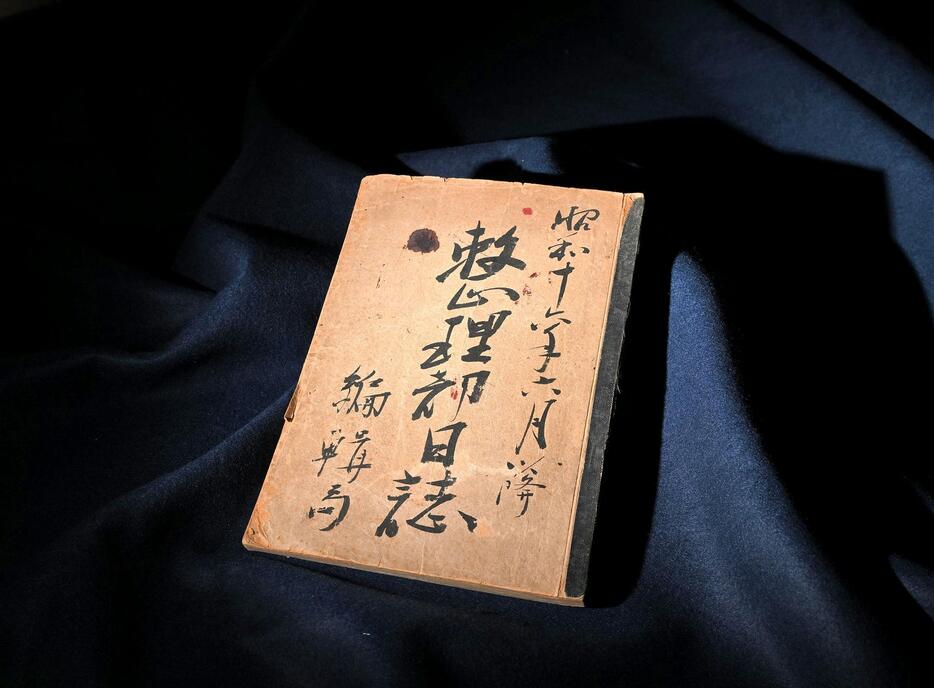 昭和十六年六月以降
整理部日誌
編輯局